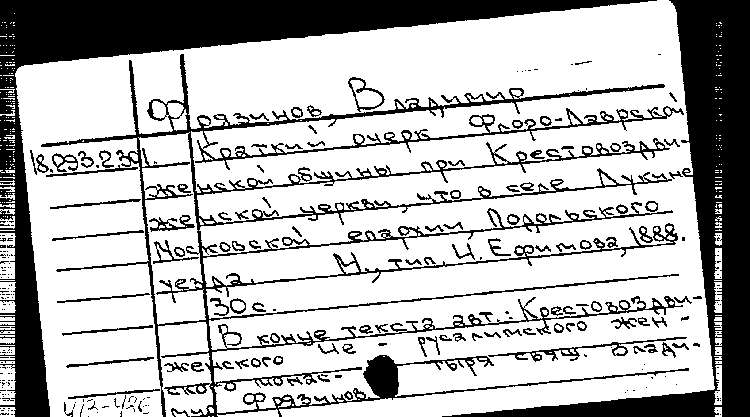 Фрязинов, Владимир
18.293.2.301. Краткий очерк Флоро-Лаврской
женской общины при Крестовоздви-
женской церкви, что в селе Лукине
Московской епархии, Подольского
уезда. М., тип. И. Ефимова, 1888.
30 с.
В конце текста авт.: Крестовоздви-
женского Ие - русалимского жен -
ского монас- тыря свящ. Влади-
мир Фрязинов